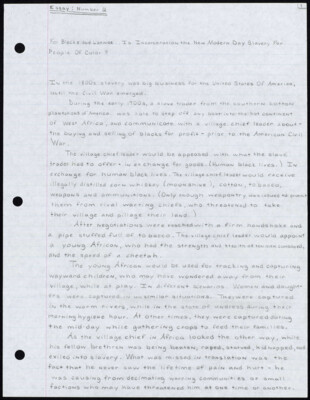 Essay: Number 2
For Blacks and Latinos: Is Incarceration the New Modern Day Slavery For
People Of Color?
In the 1800s, slavery was big business for the United States Of America,
until the Civil War emerged.
During the early 1700s, a slave trader from the southern cotton
plantations of America, was sure to step off any boat unto the continent
of West Africa, and communicate with a village chief leader about -
the buying and selling of Blacks for profit - prior to the American Civil
War.
The village chief leader would be appeased with what the slave
trader had to offer - in exchange for goods. (Human black lives.) In
exchange for human black lives. The village chief leader would receive
illegally distilled corn whiskey (moonshine), cotton, tobacco,
weapons and communications. (Only enough weaponry was allowed to protect
them from rival warring chiefs, who threatened to take
their village and pillage their land.)
After negotiations were reached with a firm handshake and
a pipe stuffed full of tobacco. The village chief leader would appoint
a young African, who had the strength and stealth of ten men combined,
and the speed of a cheetah.
The young African would be used for tracking and capturing
wayward children, who may have wandered away from their
village, while at play. In different occasions Women and daughters
were captured in dissimilar situations. They were captured
in the warm rivers, while in the state of undress during their
morning hygiene hour. At other times, they were captured during
the mid day while gathering crops to feed their families.
As the village chief in Africa looked the other way, while
his fellow brethren was being beaten, raped, starved, kidnapped, and
exiled into slavery. What was missed in translation was the
fact that he never saw the lifetime of pain and hurt - he
was causing from decimating warring communities or small
factions who may have threatened him at one time or another.